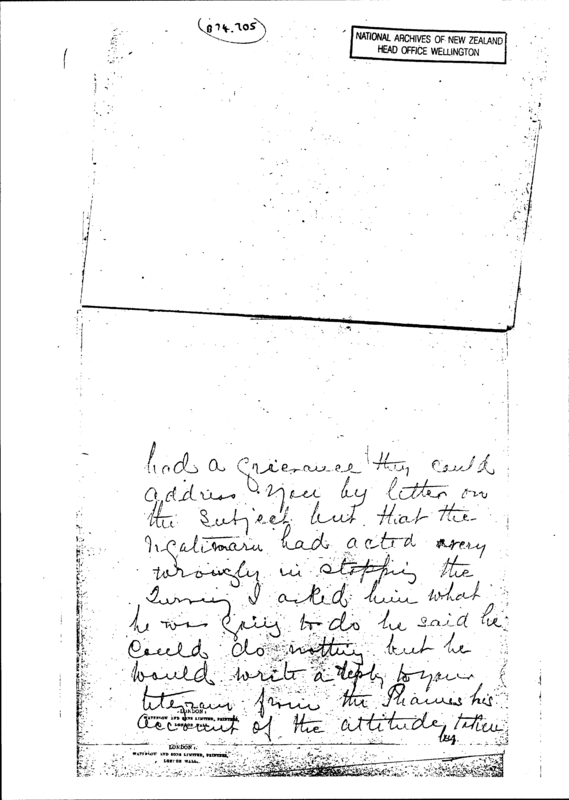 074.705
NATIONAL ARCHIVES OF NEW ZEALAND
HEAD OFFICE WELLINGTON
had a grievance they could
address you by letter on
the subject but that the
Ngatimaru had acted very
wrongly in stopping the
Survey I asked him what
he was going to do he said he
could do nothing but he
would write a reply to your
telegram from the Thames his
account of the attitude taken
by
LONDON:
WATERLOW AND SONS LIMITED, PRINTERS,
LONDON WALL.
LONDON:
WATERLOW AND SONS LIMITED, PRINTERS,
LONDON WALL.